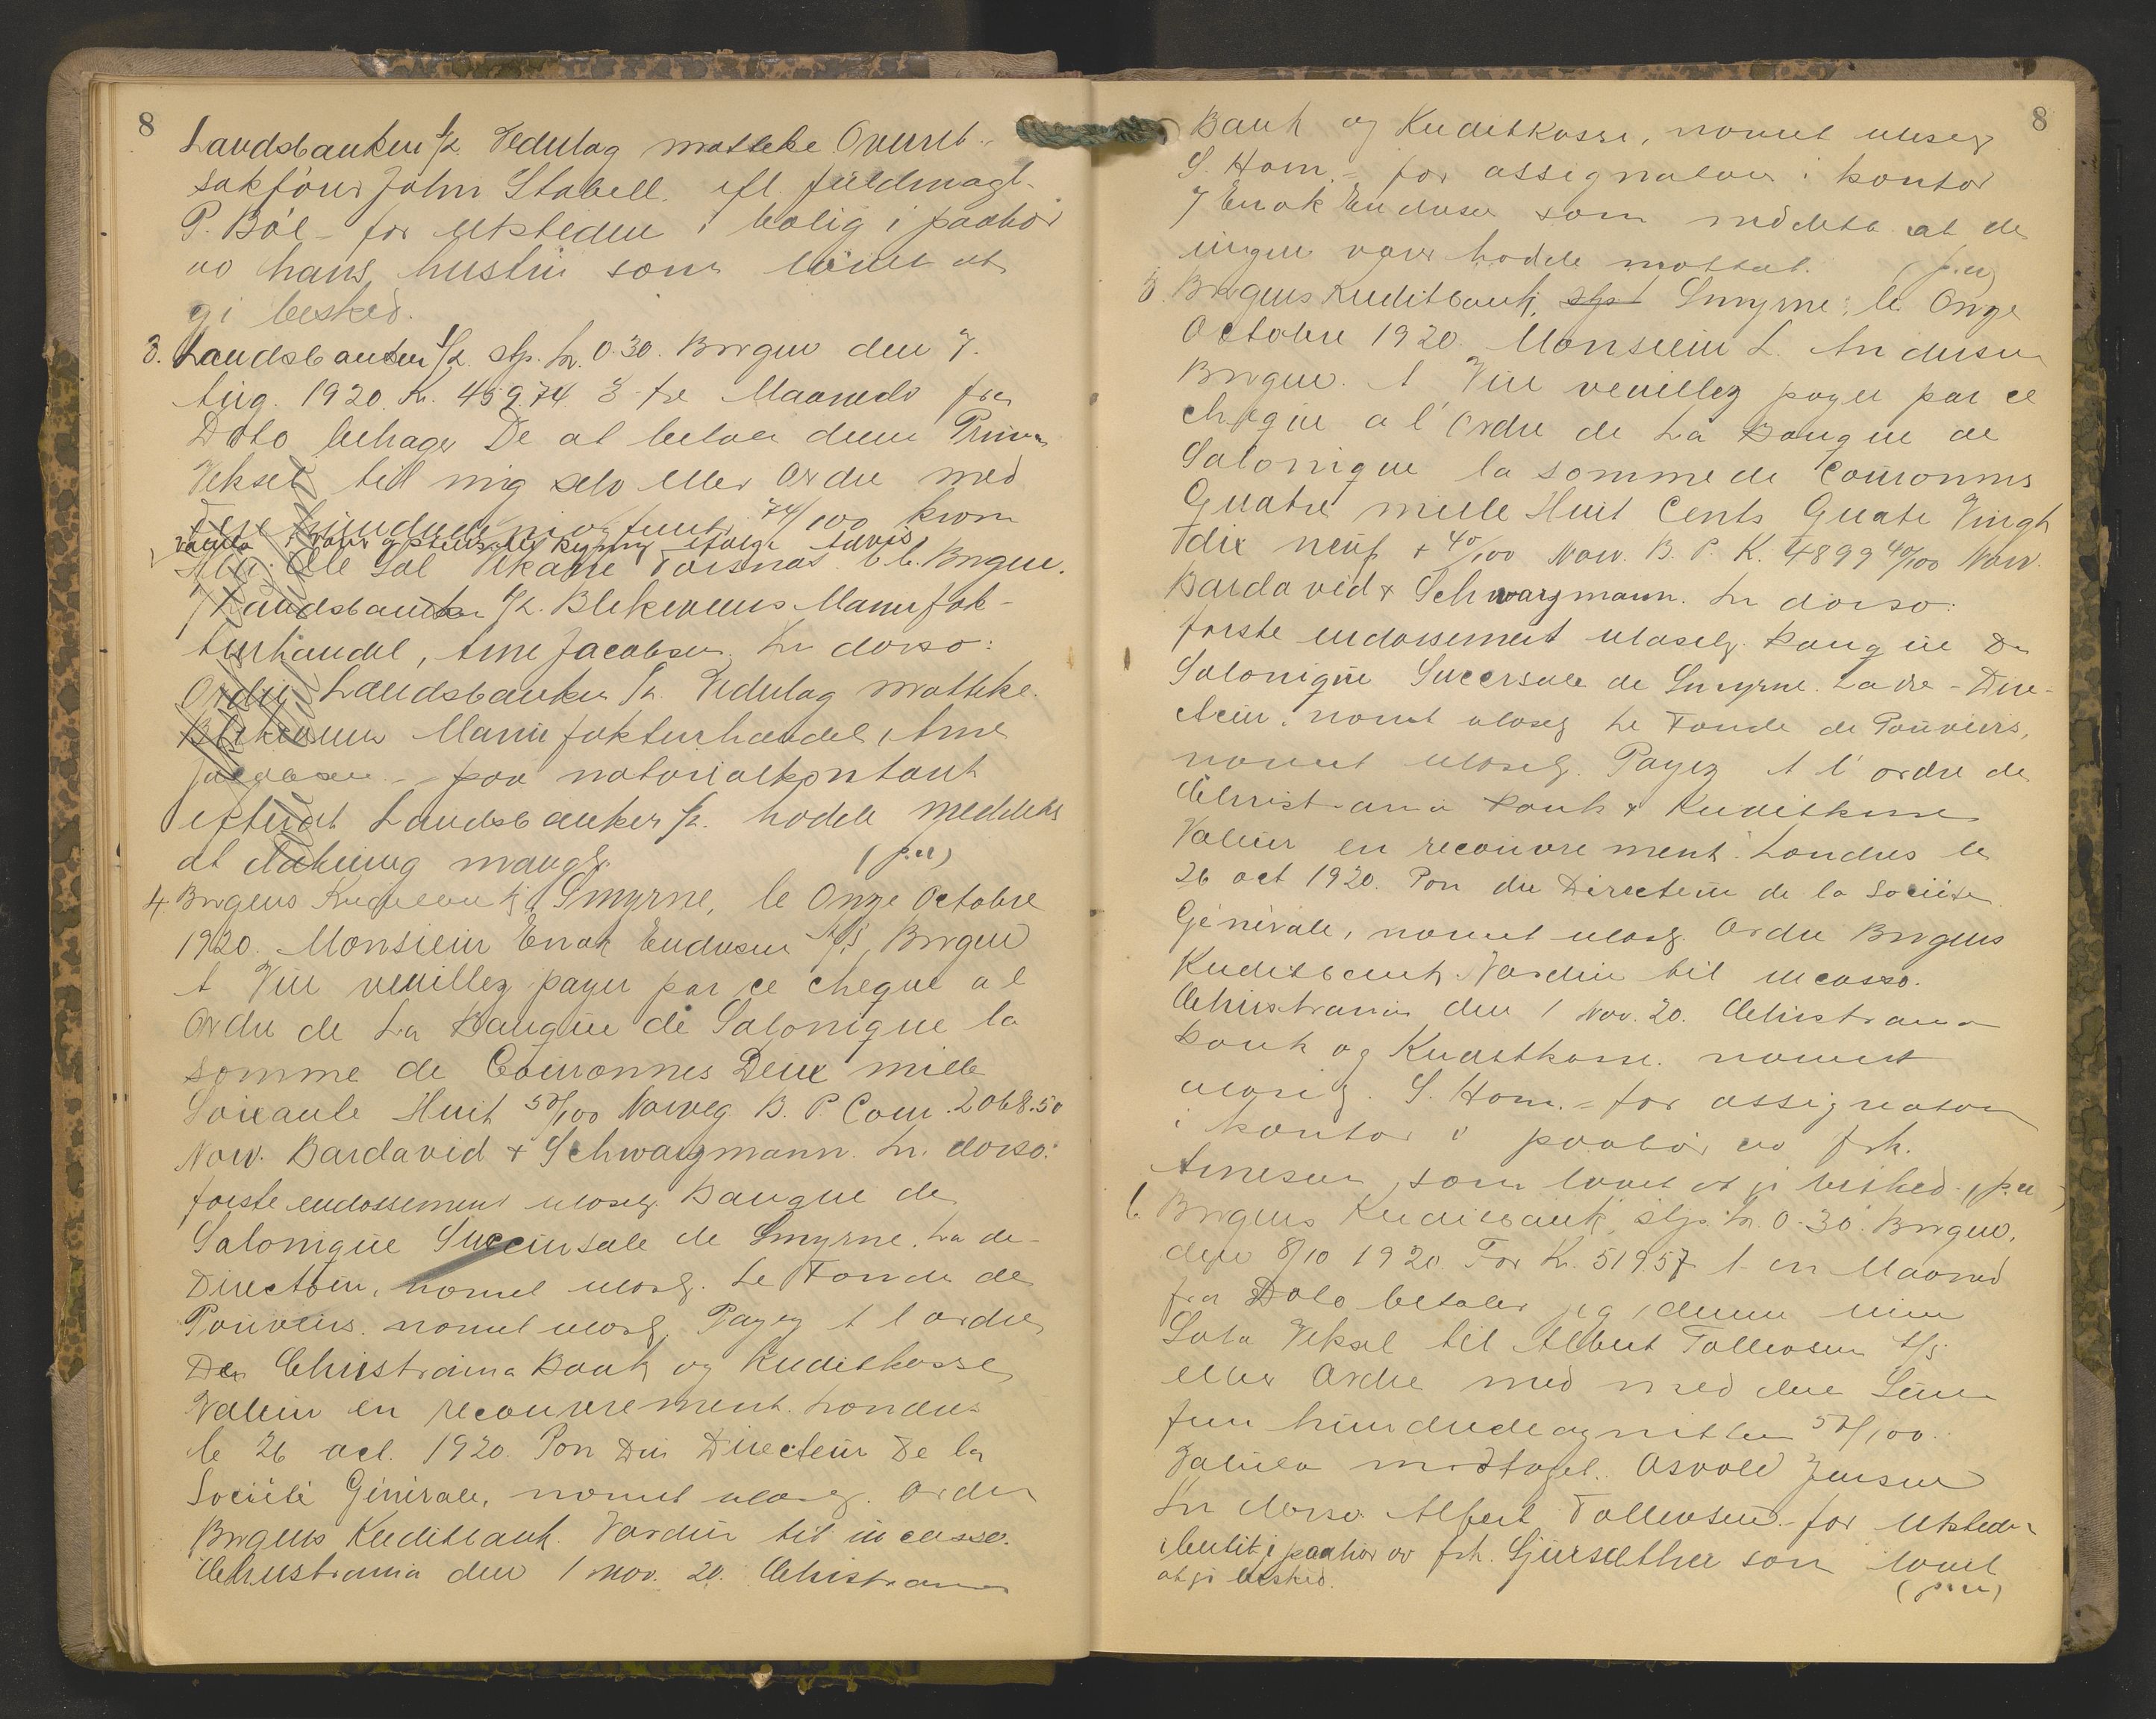 8
Landsbanken A/L. Vedulag mottike Overret-
sakförer John Stabell. efl. fuldmagt.
P. Böe - for utstederen i bolig i paahör
av hans hustru som lovet at
gi besked.
3. Landsbanken A/L. stp. kr. 0.30. Bergen den 7.
Aug. 1920. Kr. 459.74 3 - tre Maaneder fra
Dato behager De at betale denne Prima
Veksel till mig selv eller Ordre med
Fire hundrede ni og femti 74/100 kron
valuta i
Ole Sol Bergen.
Landsbanken A/L. Blekevens Manufak-
turhandel, Arne Jacobsen. In dorso:
Ordre Landsbanken A/L. Vedulag mottike.
Blekevens Manufakturhandel, Arne
Jacobsen - paa notarialkontant
efterat Landsbanken A/L. hadde meddelt
at dækning mangl. (p.u)
4. Bergens Kreditbank, Smyrne, le Onze Octobre
1920. Monsieur Enok Endresen A/S, Bergen
A Vue veuillez payer par ce cheque a l
Ordre de La Banque de Salonique la
somme de Couronnes Deux mille
Soixante Huit 50/100 Norveg. B. P. Cour. 2068.50
Norv. Bardavid & Schwarzmann. In dorso:
förste endossement ulæselg. Banque de
Salonique Succursale de Smyrne. La de-
Directeur, navnet ulæselg. Le Fonde de
Pouvoirs. navnet ulæselg. Payez A l ordre
Den Christiania Bank og Kreditkasse
Valeur en recouvrement. Londres
le 26 oct. 1920. Pon Du Directeur De la
Société Générale, navnet ulæselg. Ordre
Bergens Kreditbank. Værdin til incasso.
Christiania den 1 nov. 20. Christiania
8
Bank og Kreditkasse, navnet ulæselg
S. Hom. - for assignaten i kontor
7 Enok Endresen som meddelte at de
ingen varer hadde mottat. (p.u)
5. Bergens Kreditbank, stpt Smyrne, le Onze
Octobre 1920. Monsieur L. Andersen
Bergen. A Vue veuillez payer par ce
cheque a l'Ordre de La Banque de
Salonique la somme de Couronnes
Quatre mille Huit Cents Quatre Vingt
dix neuf + 40/100 Norv. B. P. K. 4899 40/100 Norv.
Bardavid & Schwarzmann. In dorso:
förste endossement ulæselg. Banque De
Salonique Succursale de Smyrne. La de - Dire-
cteur. navnet ulæselg Le Fonde de Pouvoirs,
navnet ulæselg. Payez A l'ordre de
Christiania Bank & Kreditkasse
Valeur en recouvrement. Londres le
26 oct 1920. Pon du Directeur de la Société
Générale, navnet ulæselg. Ordre Bergens
Kreditbank. Værdin til incasso.
Christiania den 1 Nov. 20. Christiania
Bank og Kreditkasse. navnet
ulæselg. S. Hom. - for assignaten
i kontor i paahör av frk.
Arnesen, som lovet at gi besked. (p.u)
6. Bergens Kreditbank, stp. kr. 0.30. Bergen,
den 8/10 1920. For Kr. 519.57 1 - en Maaned
fra Dato betaler jeg denne min
Sola Veksel til Albert Tollevsen A/S.
eller Ordre med med den Sum
fem hundredeognitten 57/100.
Valuta modtaget. Osvald Jensen
In dorso. Albert Tollevsen. for Utsteder
i butik i paahör av frk. Gjersæther som lovet
at gi besked. (p.u)